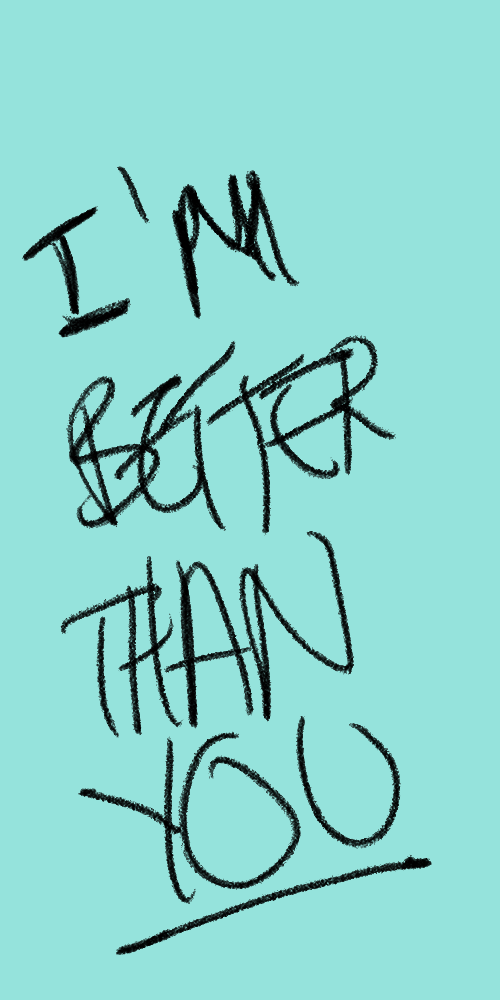 I'M
BETTER
THAN
YOU